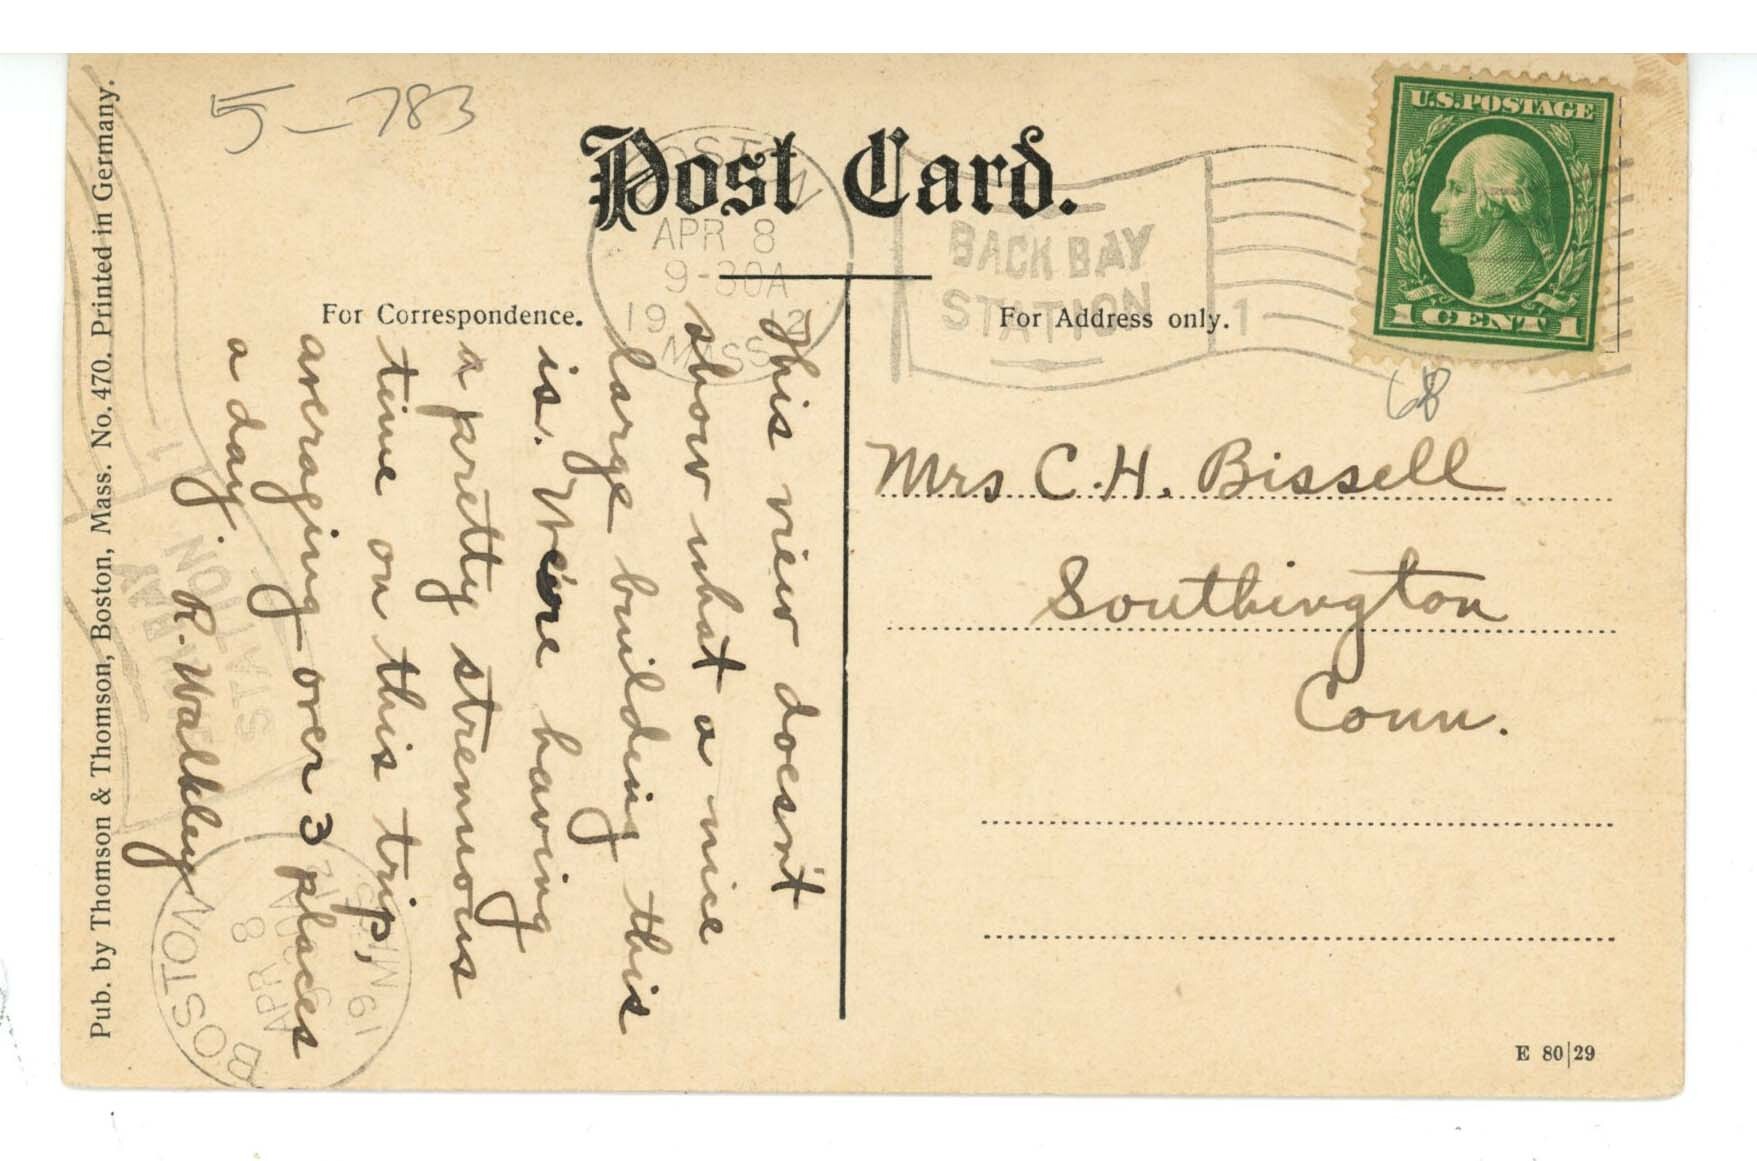 5-783
Post Card.
BOSTON
APR 8
9-30A
1912
MASS.
BACK BAY
STATION
1
U.S. POSTAGE
1 CENT 1
68
For Correspondence.
For Address only.
This view doesn't
show what a nice
large building this
is. We're having
a pretty strenuous
time on this trip,
averaging over 3 places
a day.
R. Walkley
Mrs C. H. Bissell
Southington
Conn.
Pub. by Thomson & Thomson, Boston, Mass. No. 470. Printed in Germany.
BOSTON
APR 8
19
MASS
BAY
STATION
1
E 80|29